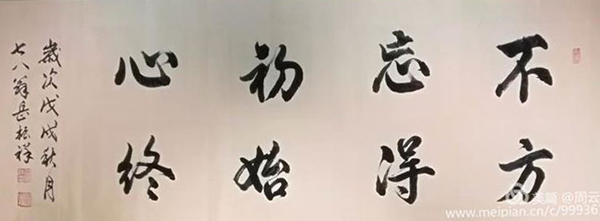 不方
忘得
初始
心终
歲次戊戌秋月
七八翁岳振祥
美篇 @周云
www.meipian.cn/c/99936